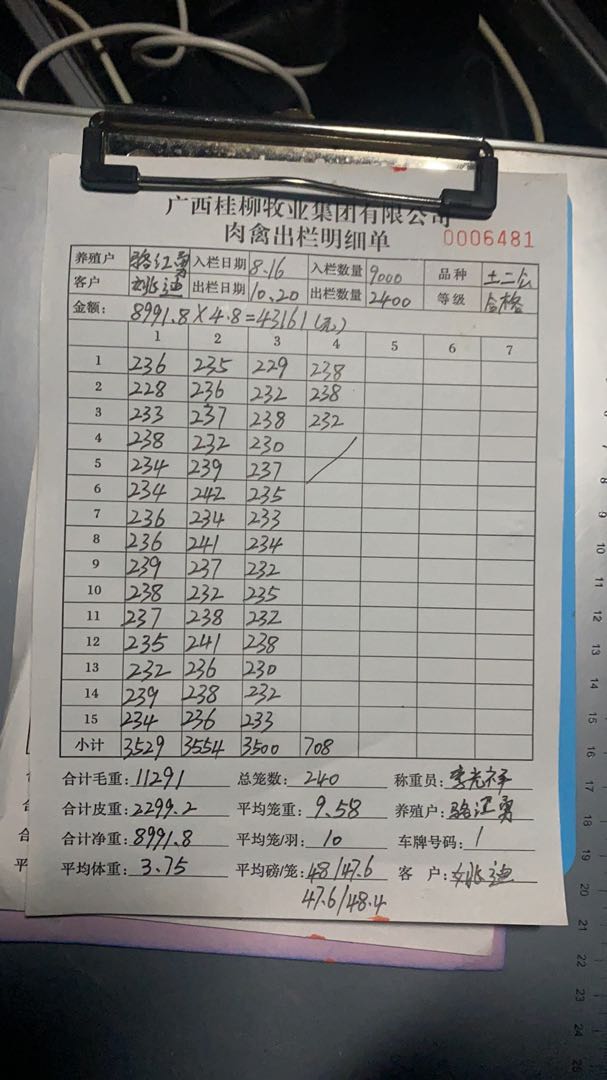 广西桂柳牧业集团有限公司
肉禽出栏明细单 0006481
养殖户 骆江勇 入栏日期 8.16 入栏数量 9000 品种 土二公
客户 姚迪 出栏日期 10.20 出栏数量 2400 等级 合格
金额: 8991.8×4.8=43161(元)
1 2 3 4 5 6 7
1 236 235 229 238
2 228 236 232 238
3 233 237 238 232
4 238 232 230
5 234 239 237
6 234 242 235
7 236 234 233
8 236 241 234
9 239 237 232
10 238 232 235
11 237 238 232
12 235 241 238
13 232 236 230
14 239 238 232
15 234 236 233
小计 3529 3554 3500 708
合计毛重: 11291 总笼数: 240 称重员: 李光祥
合计皮重: 2299.2 平均笼重: 9.58 养殖户: 骆江勇
合计净重: 8991.8 平均笼/羽: 10 车牌号码: 1
平均体重: 3.75 平均磅/笼: 48/47.6 客 户: 姚迪
47.6/48.4